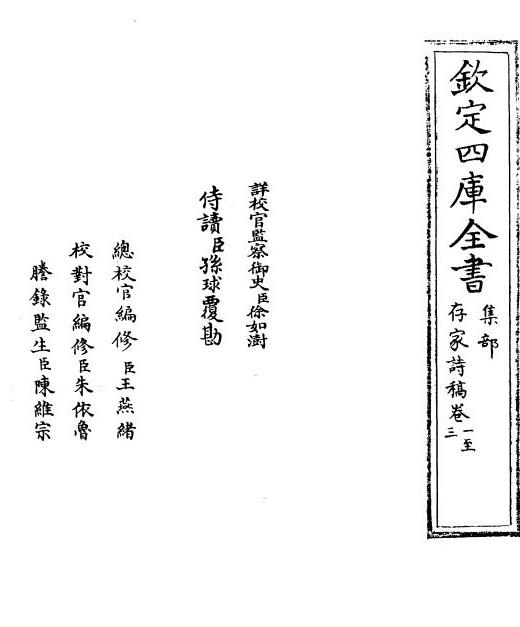 欽定四庫全書
集部
存家詩稿卷一至三
詳校官監察御史臣徐如澍
侍讀臣孫球覆勘
總校官編修臣王燕緒
校對官編修臣朱依魯
謄錄監生臣陳維宗